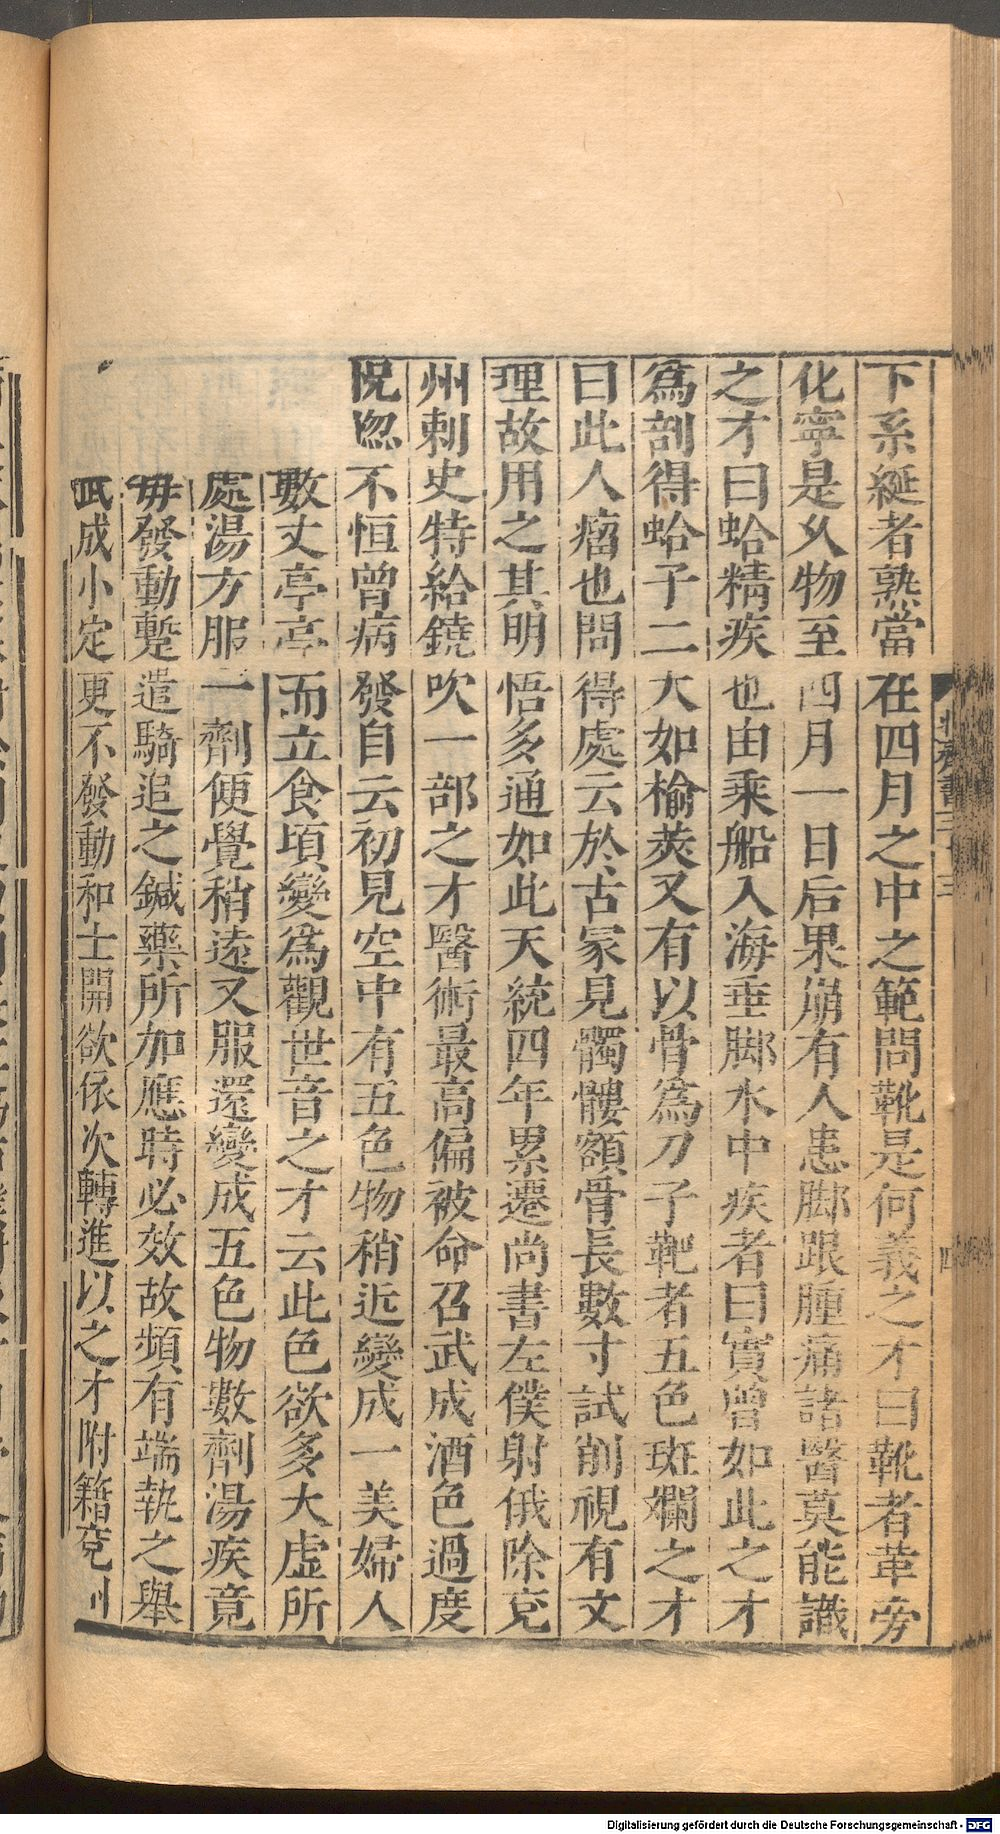 下系綖者熟當在四月之中之範問靴是何義之才曰靴者革旁
化寧是久物至四月一日后果崩有人患脚跟腫痛諸醫莫能識
之才曰蛤精疾也由乘船入海垂脚水中疾者曰實曾如此之才
爲剖得蛤子二大如榆莢又有以骨爲刀子靶者五色斑斕之才
曰此人瘤也問得處云於古冢見髑髏額骨長數寸試削視有文
理故用之其明悟多通如此天統四年累遷尚書左僕射俄除兗
州刺史特給鐃吹一部之才醫術最高偏被命召武成酒色過度
怳惚不恒曾病發自云初見空中有五色物稍近變成一美婦人
數丈亭亭而立食頃變爲觀世音之才云此色欲多大虛所
處湯方服一劑便覺稍遠又服還變成五色物數劑湯疾竟
毋發動蹔遣騎追之鍼藥所加應時必效故頻有端執之舉
武成小定更不發動和士開欲依次轉進以之才附籍兗州
北齊書三十三
四
Digitalisierung gefördert durch die Deutsche Forschungsgemeinschaft - DFG